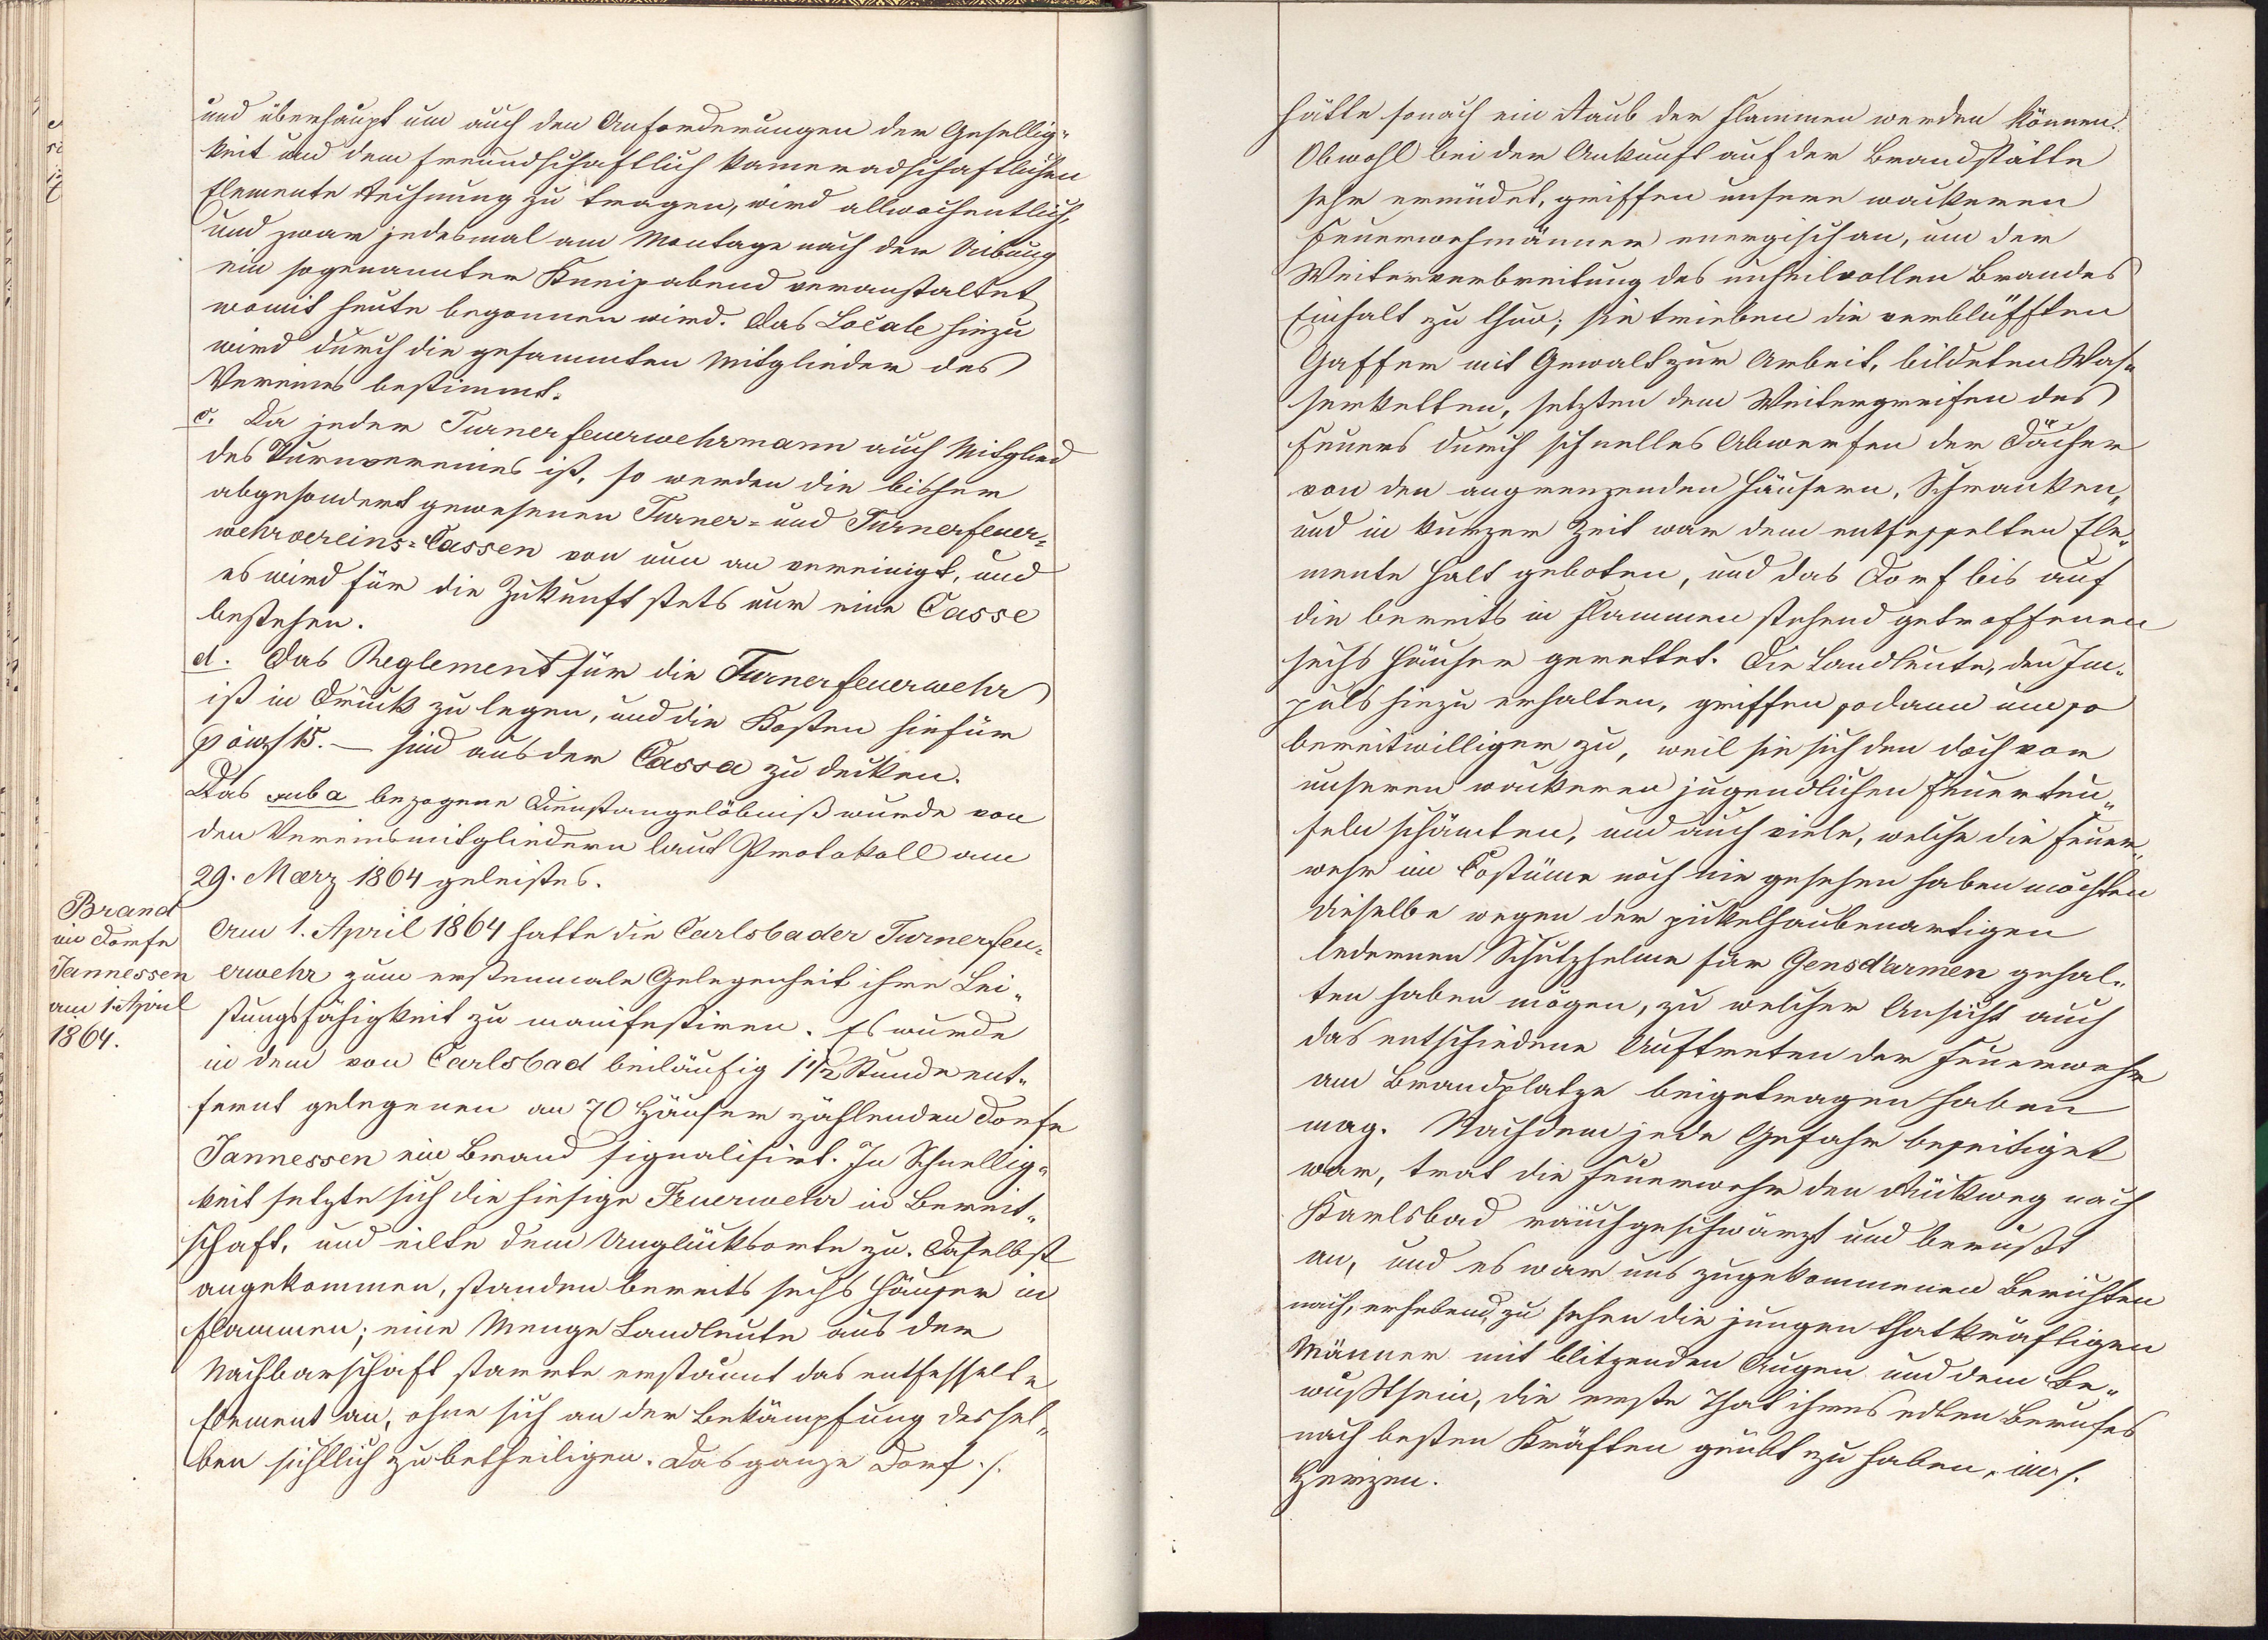 und überhaupt um auch den Anforderungen der Gesellig-
keit und dem freundschaftlich kameradschaftlichen
Elemente Rechnung zu tragen, wird allwochentlich,
und zwar jedesmal am Montage nach der Uibung
ein sogenannter Kneipabend veranstaltet
womit heute begonnen wird. Das Locale hiezu
wird durch die gesammten Mitglieder des
Vereines bestimmt.
c. Da jeder Turnerfeuerwehrmann auch Mitglied
des Turnvereines ist, so werden die bisher
abgesondert gewesenen Turner- und Turnerfeuer-
wehrvereins-Cassen von nun an vereinigt, und
es wird für die Zukunft stets nur eine Casse
bestehen.
d. Das Reglement für die Turnerfeuerwehr
ist in Druck zu legen, und die Kosten hiefür
15.— sind aus der Cassa zu decken.
Das sub a bezogene Dienstangelöbniß wurde von
den Vereinsmitgliedern laut Protokoll am
29. Maerz 1864 geleistes.
Brand
im Dorfe
Jannessen
am 1. April
1864.
Am 1. April 1864 hatte die Carlsbader Turnerfeu-
erwehr zum erstenmale Gelegenheit ihre Lei-
stungsfähigkeit zu manifestiren. Es wurde
in dem von Carlsbad beiläufig 1½ Stunde ent-
fernt gelegenen an 70 Häuser zählenden Dorfe
Jannessen ein Brand signalisirt. In Schnellig-
keit setzte sich die hiesige Feuerwehr in Bereit-
schaft, und eilte dem Unglücksorte zu. Daselbst
angekommen, standen bereits sechs Häuser in
Flammen; eine Menge Landleute aus der
Nachbarschaft starrte erstaunt das entfesselte
Element an, ohne sich an der Bekämpfung dessel-
ben sichtlich zu betheiligen. Das ganze Dorf ./.
hätte sonach ein Raub der Flammen werden können.
Obwohl bei der Ankunft auf der Brandstätte
sehr ermüdet, griffen unsere wackeren
Feuerwehrmänner energisch an, um der
Weiterverbreitung des unheilvollen Brandes
Einhalt zu thun; sie trieben die verblüfften
Gaffer mit Gewalt zur Arbeit, bildeten Was-
serketten, setzten dem Weitergreifen des
Feuers durch schnelles Abwerfen der Dächer
von den angrenzenden Häusern, Schranken,
und in kurzer Zeit war dem entfesselten Ele-
mente Halt geboten, und das Dorf bis auf
die bereits in Flammen stehend getroffenen
sechs Häuser gerettet. Die Landleute, den Im-
puls hiezu erhalten, griffen sodann um so
bereitwilliger zu, weil sie sich den doch vor
unseren wackeren jugendlichen Feuerteu-
feln schämten, und auch viele, welche die Feuer-
wehr im Costüme noch nie gesehen haben mochten
dieselbe wegen der pickelhaubenartigen
ledernen Schutzhelme für Gensd'armen gehal-
ten haben mögen, zu welcher Ansicht auch
das entschiedene Auftreten der Feuerwehr
am Brandplatze beigetragen haben
mag. Nachdem jede Gefahr beseitiget
war, trat die Feuerwehr den Rückweg nach
Karlsbad rauchgeschwärzt und berußt
an, und es war uns zugekommenen Berichten
nach, erhebend, zu sehen die jungen thatkräftigen
Männer mit blitzenden Augen und dem Be-
wußtsein, die erste That ihres edlen Berufes
nach besten Kräften geübt zu haben, im /.
Herzen.